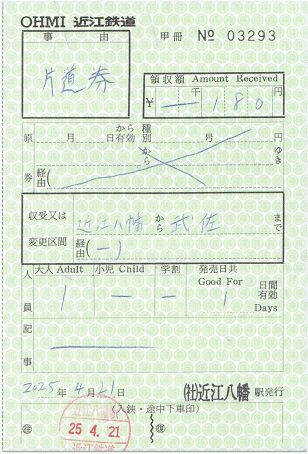 OHMI 近江鉄道
事由 甲冊 № 03293
片道券
領収額 Amount Received
￥ ― 千 180 円
原券 月 日から有効 種別 号 円
から ゆき
経由( )
収受又は変更区間 近江八幡 から 武佐 まで
経由(―)
人員 大人 Adult 小児 Child 学割 発売日共 Good For 日間有効 Days
1 ― ― 1
記事
2025年4月21日 (社)近江八幡 駅発行
(入鋏・途中下車印)
近江八幡駅
25.4.21
近江鉄道